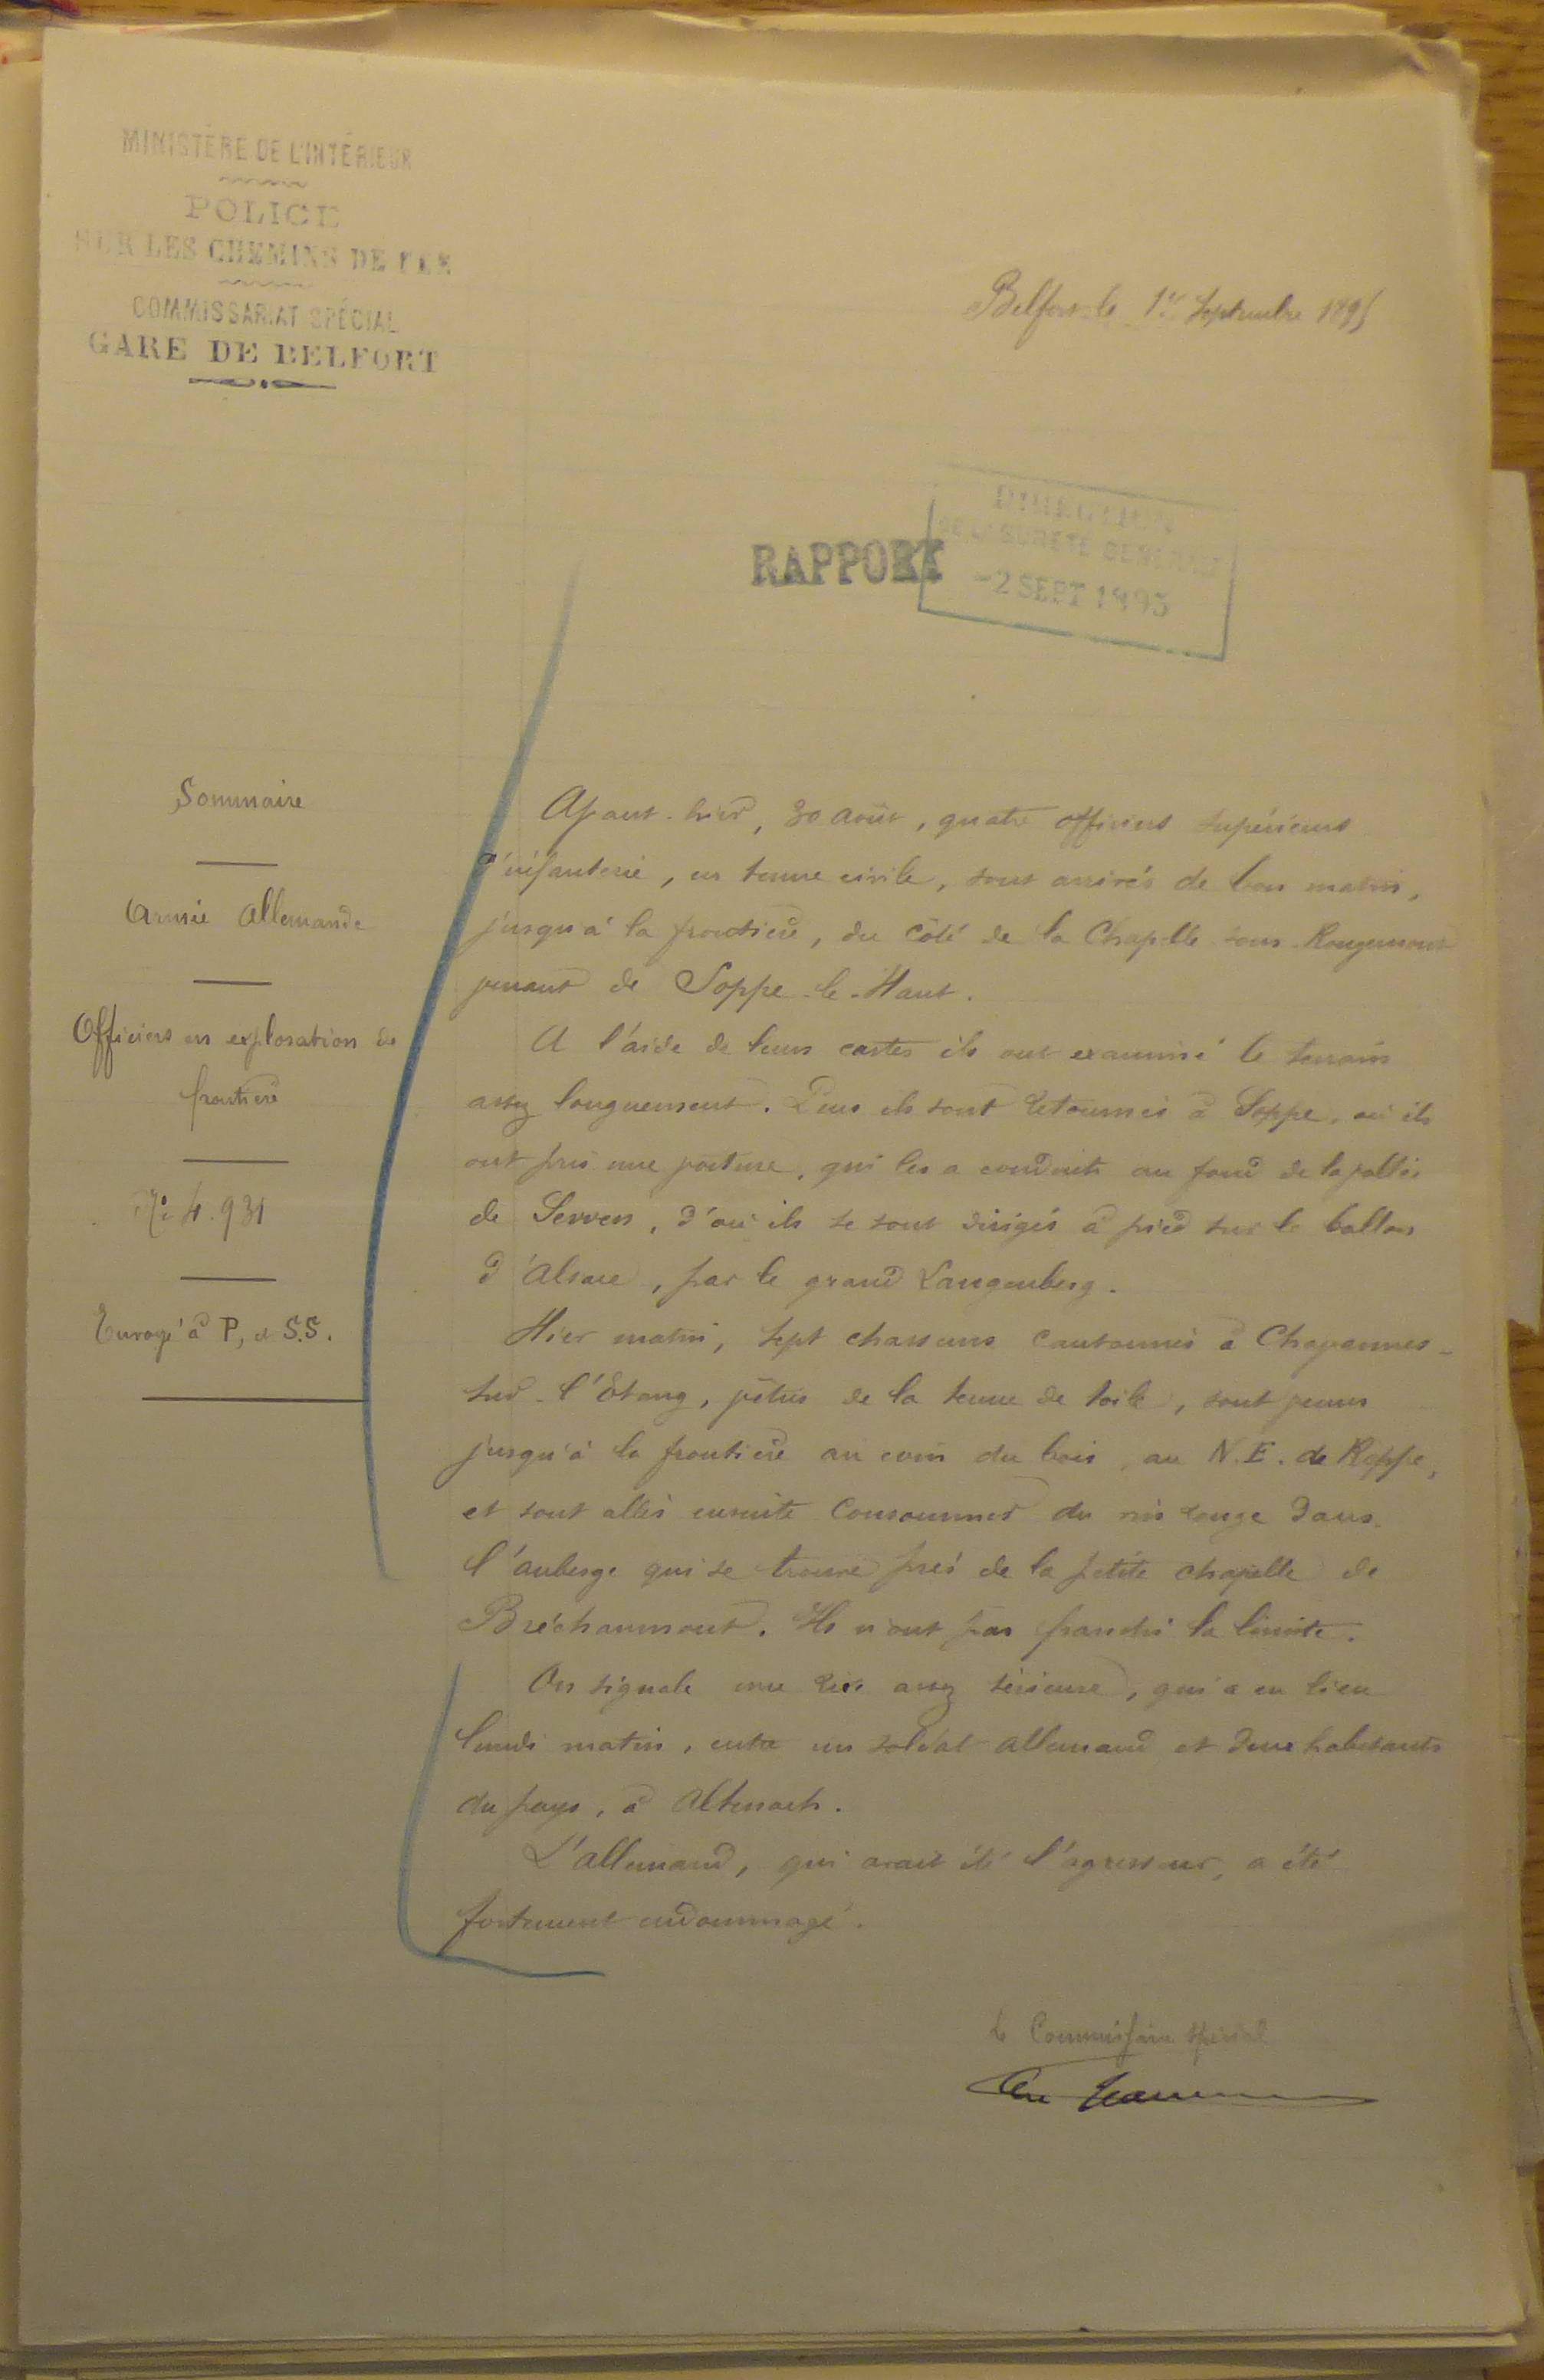 MINISTÈRE DE L'INTÉRIEUR
POLICE
SUR LES CHEMINS DE FER
COMMISSARIAT SPÉCIAL
GARE DE BELFORT
Belfort le 1er Septembre 1895
RAPPORT
DIRECTION
DE LA SURETÉ GÉNÉRALE
-2 SEPT 1895
Sommaire
Armée Allemande
Officiers en exploration de
frontière
No 4.931
Envoyé à P, et S.S.
Avant-hier, 30 août, quatre officiers supérieurs
d'infanterie, en tenue civile, sont arrivés de bon matin,
jusqu'à la frontière, du côté de la Chapelle sous-Rougemont
venant de Soppe-le-Haut.
A l'aide de leurs cartes ils ont examiné le terrain
assez longuement. Puis ils sont retournés à Soppe, où ils
ont pris une voiture, qui les a conduits au fond de la vallée
de Serven, d'où ils se sont dirigés à pied sur le ballon
d'Alsace, par le grand Langenberg.
Hier matin, sept chasseurs cantonnés à Chavannes-
sur-l'Etang, vêtus de la tenue de toile, sont venus
jusqu'à la frontière au coin du bois, au N.E. de Reppe,
et sont allés ensuite consommer du vin rouge dans
l'auberge qui se trouve près de la petite chapelle de
Bréchaumont. Ils n'ont pas franchi la limite.
On signale une rixe assez sérieuse, qui a eu lieu
lundi matin, entre un soldat allemand et deux habitants
du pays, à Altenach.
L'allemand, qui avait été l'agresseur, a été
fortement endommagé.
Le Commissaire spécial